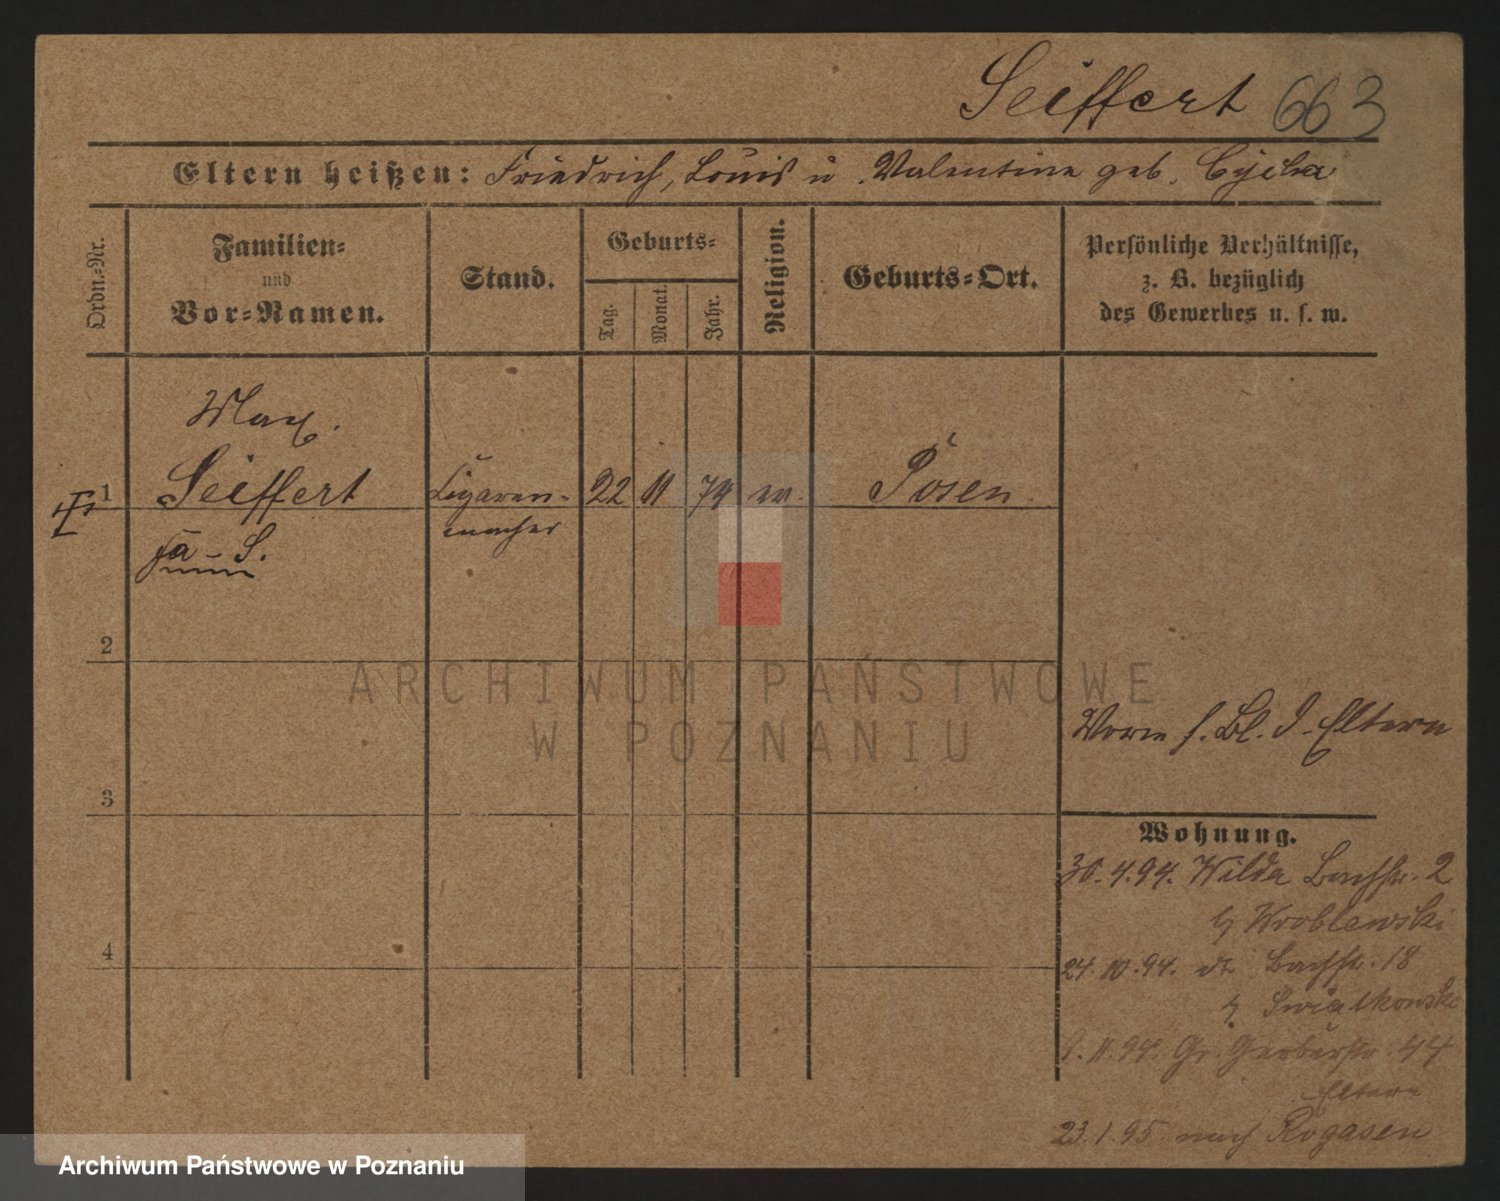 Seiffert 663
Eltern heißen: Friedrich, Louis u Valentine geb.
Ordn.-Nr.
Familien-
und
Vor-Namen.
Stand.
Geburts-
Tag.
Monat.
Jahr.
Religion.
Geburts-Ort.
Persönliche Verhältnisse,
z. B. bezüglich
des Gewerbes u. s. w.
Max.
1 Seiffert Cigaren- 22 11 74 Posen
macher
2
3
4
Vorm s. Bl. d. Eltern
Wohnung.
30.4.94. Wilda Bachstr. 2
b/ Wroblewski
24.10.94. dt Bachstr. 18
b/ Swiatkowski
9.11.94. Gr. Gerberstr. 44
Eltern
23.1.95 nach Rogasen
ARCHIWUM PAŃSTWOWE
W POZNANIU
Archiwum Państwowe w Poznaniu